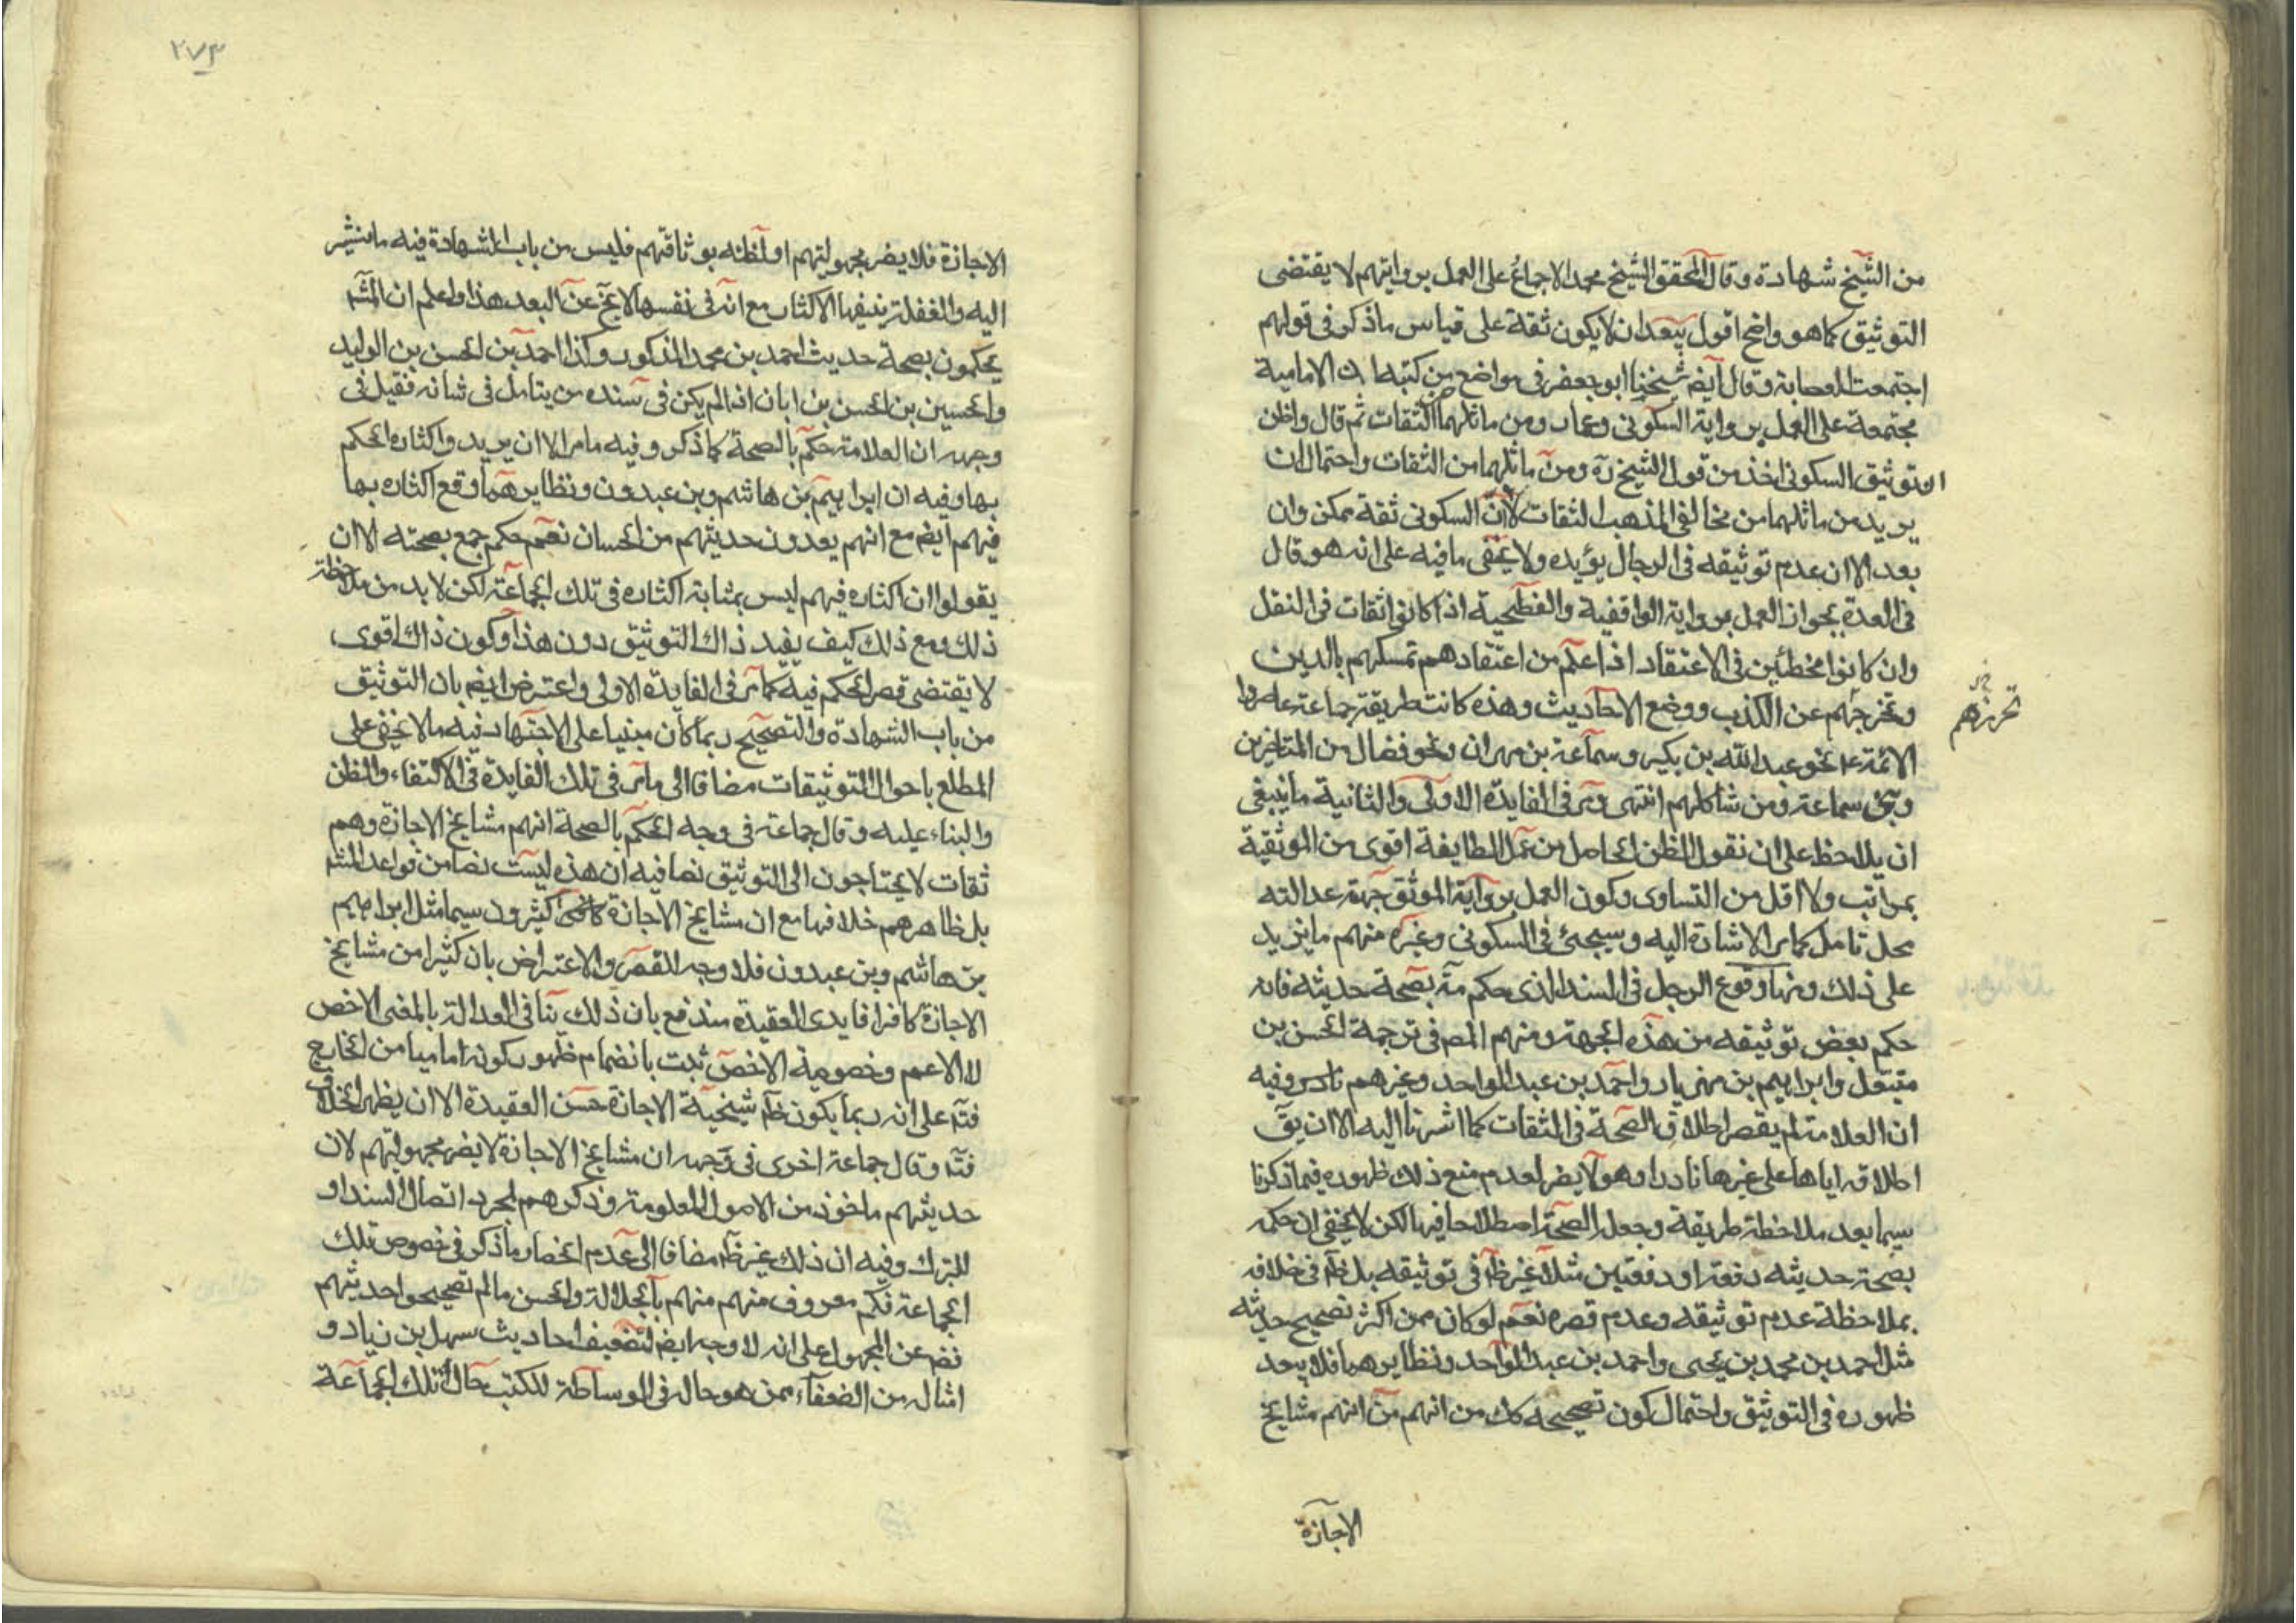 من الشيخ شهادة وقال المحقق الشيخ محمد الاجماع على العمل بروايتهم لا يقتضى
التوثيق كما هو واضح اقول يبعد ان لا يكون ثقة على قياس ما ذكر فى قولهم
اجتمعت العصابة وقال ايضا شيخنا ابو جعفر فى مواضع من كتبه ان الامامية
مجتمعة على العمل برواية السكونى وعمار ومن ماثلهما من الثقات ثم قال واظن
ان توثيق السكونى اخذ من قول الشيخ ره ومن ماثلهما من الثقات واحتمال ان
يريد من ماثلهما من مخالفى المذهب الثقات لا ان السكونى ثقة ممكن وان
بعد الا ان عدم توثيقه فى الرجال يؤيده ولا يخفى ما فيه على انه هو قال
فى العدة بجواز العمل برواية الواقفية والفطحية اذا كانوا ثقات فى النقل
وان كانوا مخطئين فى الاعتقاد اذا علم من اعتقادهم تمسكهم بالدين
وتحرجهم عن الكذب ووضع الاحاديث وهذه كانت طريقة جماعة عاصروا
تحرزهم
الائمة ع نحو عبد الله بن بكير وسماعة بن مهران ونحو فضال من المتاخرين
وبنى سماعة ومن شاكلهم انتهى ومر فى الفايدة الاولى والثانية ما ينبغى
ان يلاحظ على ان نقول الظن الحاصل من عمل الطايفة اقوى من الموثقية
بمراتب ولا اقل من التساوى وكون العمل برواية الموثق جهة عدالته
محل تامل كما مر الاشارة اليه وسيجئ فى السكونى وغيره منهم ما يزيد
على ذلك ومنها وقوع الرجل فى السند الذى حكم مة بصحة حديثه فانه
حكم بعض توثيقه من هذه الجهة ومنهم المص فى ترجمة الحسن بن
متيل وابراهيم بن مهزيار واحمد بن عبد الواحد وغيرهم وفيه
ان العلامة لم يقصر اطلاق الصحة فى الثقات كما اشرنا اليه الا ان يق
اطلاقه اياها على غيرها نادرا وهو لا يضر لعدم منع ذلك ظهوره فيما ذكرنا
سيما بعد ملاحظة طريقة وجعل الصحة اصطلاحا فيها لكن لا يخفى ان حكمه
بصحة حديثه دفعة او دفعتين مثلا غير ظم فى توثيقه بل ظم فى خلافه
بملاحظة عدم توثيقه وعدم قصره نعم لو كان ممن اكثر تصحيح حديثه
مثل احمد بن محمد بن يحيى واحمد بن عبد الواحد ونظايرهما فلا يبعد
ظهوره فى التوثيق واحتمال كون تصحيحه كك من انهم من انهم مشايخ
الاجازة
٢٧٣
الاجازة فلا يضر مجهوليتهم او لظنه بوثاقتهم فليس من باب الشهادة فيه ما سنشير
اليه والغفلة ينفيها الاكثار مع انه فى نفسها لا يخ عن البعد هذا واعلم ان المشه
يحكمون بصحة حديث احمد بن محمد المذكور وكذا احمد بن الحسن بن الوليد
والحسين بن الحسن بن ابان اذا لم يكن فى سنده من يتامل فى شانه فقيل فى
وجهه ان العلامة حكم بالصحة كما ذكر وفيه ما مر الا ان يريد واكثاره الحكم
بها وفيه ان ابراهيم بن هاشم وبن عبدون ونظايرهما وقع اكثاره بها
فيهم ايضا مع انهم يعدون حديثهم من الحسان نعم حكم جمع بصحته الا ان
يقولوا ان اكثاره فيهم ليس بمثابة اكثاره فى تلك الجماعة لكن لا بد من ملاحظة
ذلك ومع ذلك كيف يفيد ذاك التوثيق دون هذا وكون ذاك اقوى
لا يقتضى قصر الحكم فيه كما مر فى الفايدة الاولى واعترض ايضا بان التوثيق
من باب الشهادة والتصحيح ربما كان مبنيا على الاجتهاد فيه ما لا يخفى على
المطلع باحوال التوثيقات مضافا الى ما مر فى تلك الفايدة فى الاكتفاء والظن
والبناء عليه وقال جماعة فى وجه الحكم بالصحة انهم مشايخ الاجازة وهم
ثقات لا يحتاجون الى التوثيق نصا فيه ان هذه ليست نصا من قواعد المشه
بل ظاهرهم خلافها مع ان مشايخ الاجازة كثيرون سيما مثل ابراهيم
بن هاشم وبن عبدون فلا وجه للقصر والاعتراض بان كثيرا من مشايخ
الاجازة كانوا فاسدى العقيدة مندفع بان ذلك ينافى العدالة بالمعنى الاخص
لا الاعم وخصوصية الاخص ثبت بانضمام ظهور كونه اماميا من الخارج
فتم على انه ربما يكون ظم شيخية الاجازة حسن العقيدة الا ان يظهر الخلاف
فتم وقال جماعة اخرى فى وجهه ان مشايخ الاجازة لا يضر مجهوليتهم لان
حديثهم ماخوذ من الاصول المعلومة وذكرهم لمجرد اتصال السند او
للتبرك وفيه ان ذلك غير ظم مضافا الى عدم انحصار ما ذكر فى خصوص تلك
الجماعة فكم معروف منهم منهم بالجلالة والحسن ما لم تصحيحوا حديثهم
فضه عن المجهول على انه لا وجه ايضا لتضعيف احاديث سهل بن زياد و
امثاله من الضعفاء ممن هو حاله فى الوساطة للكتب حال تلك الجماعة